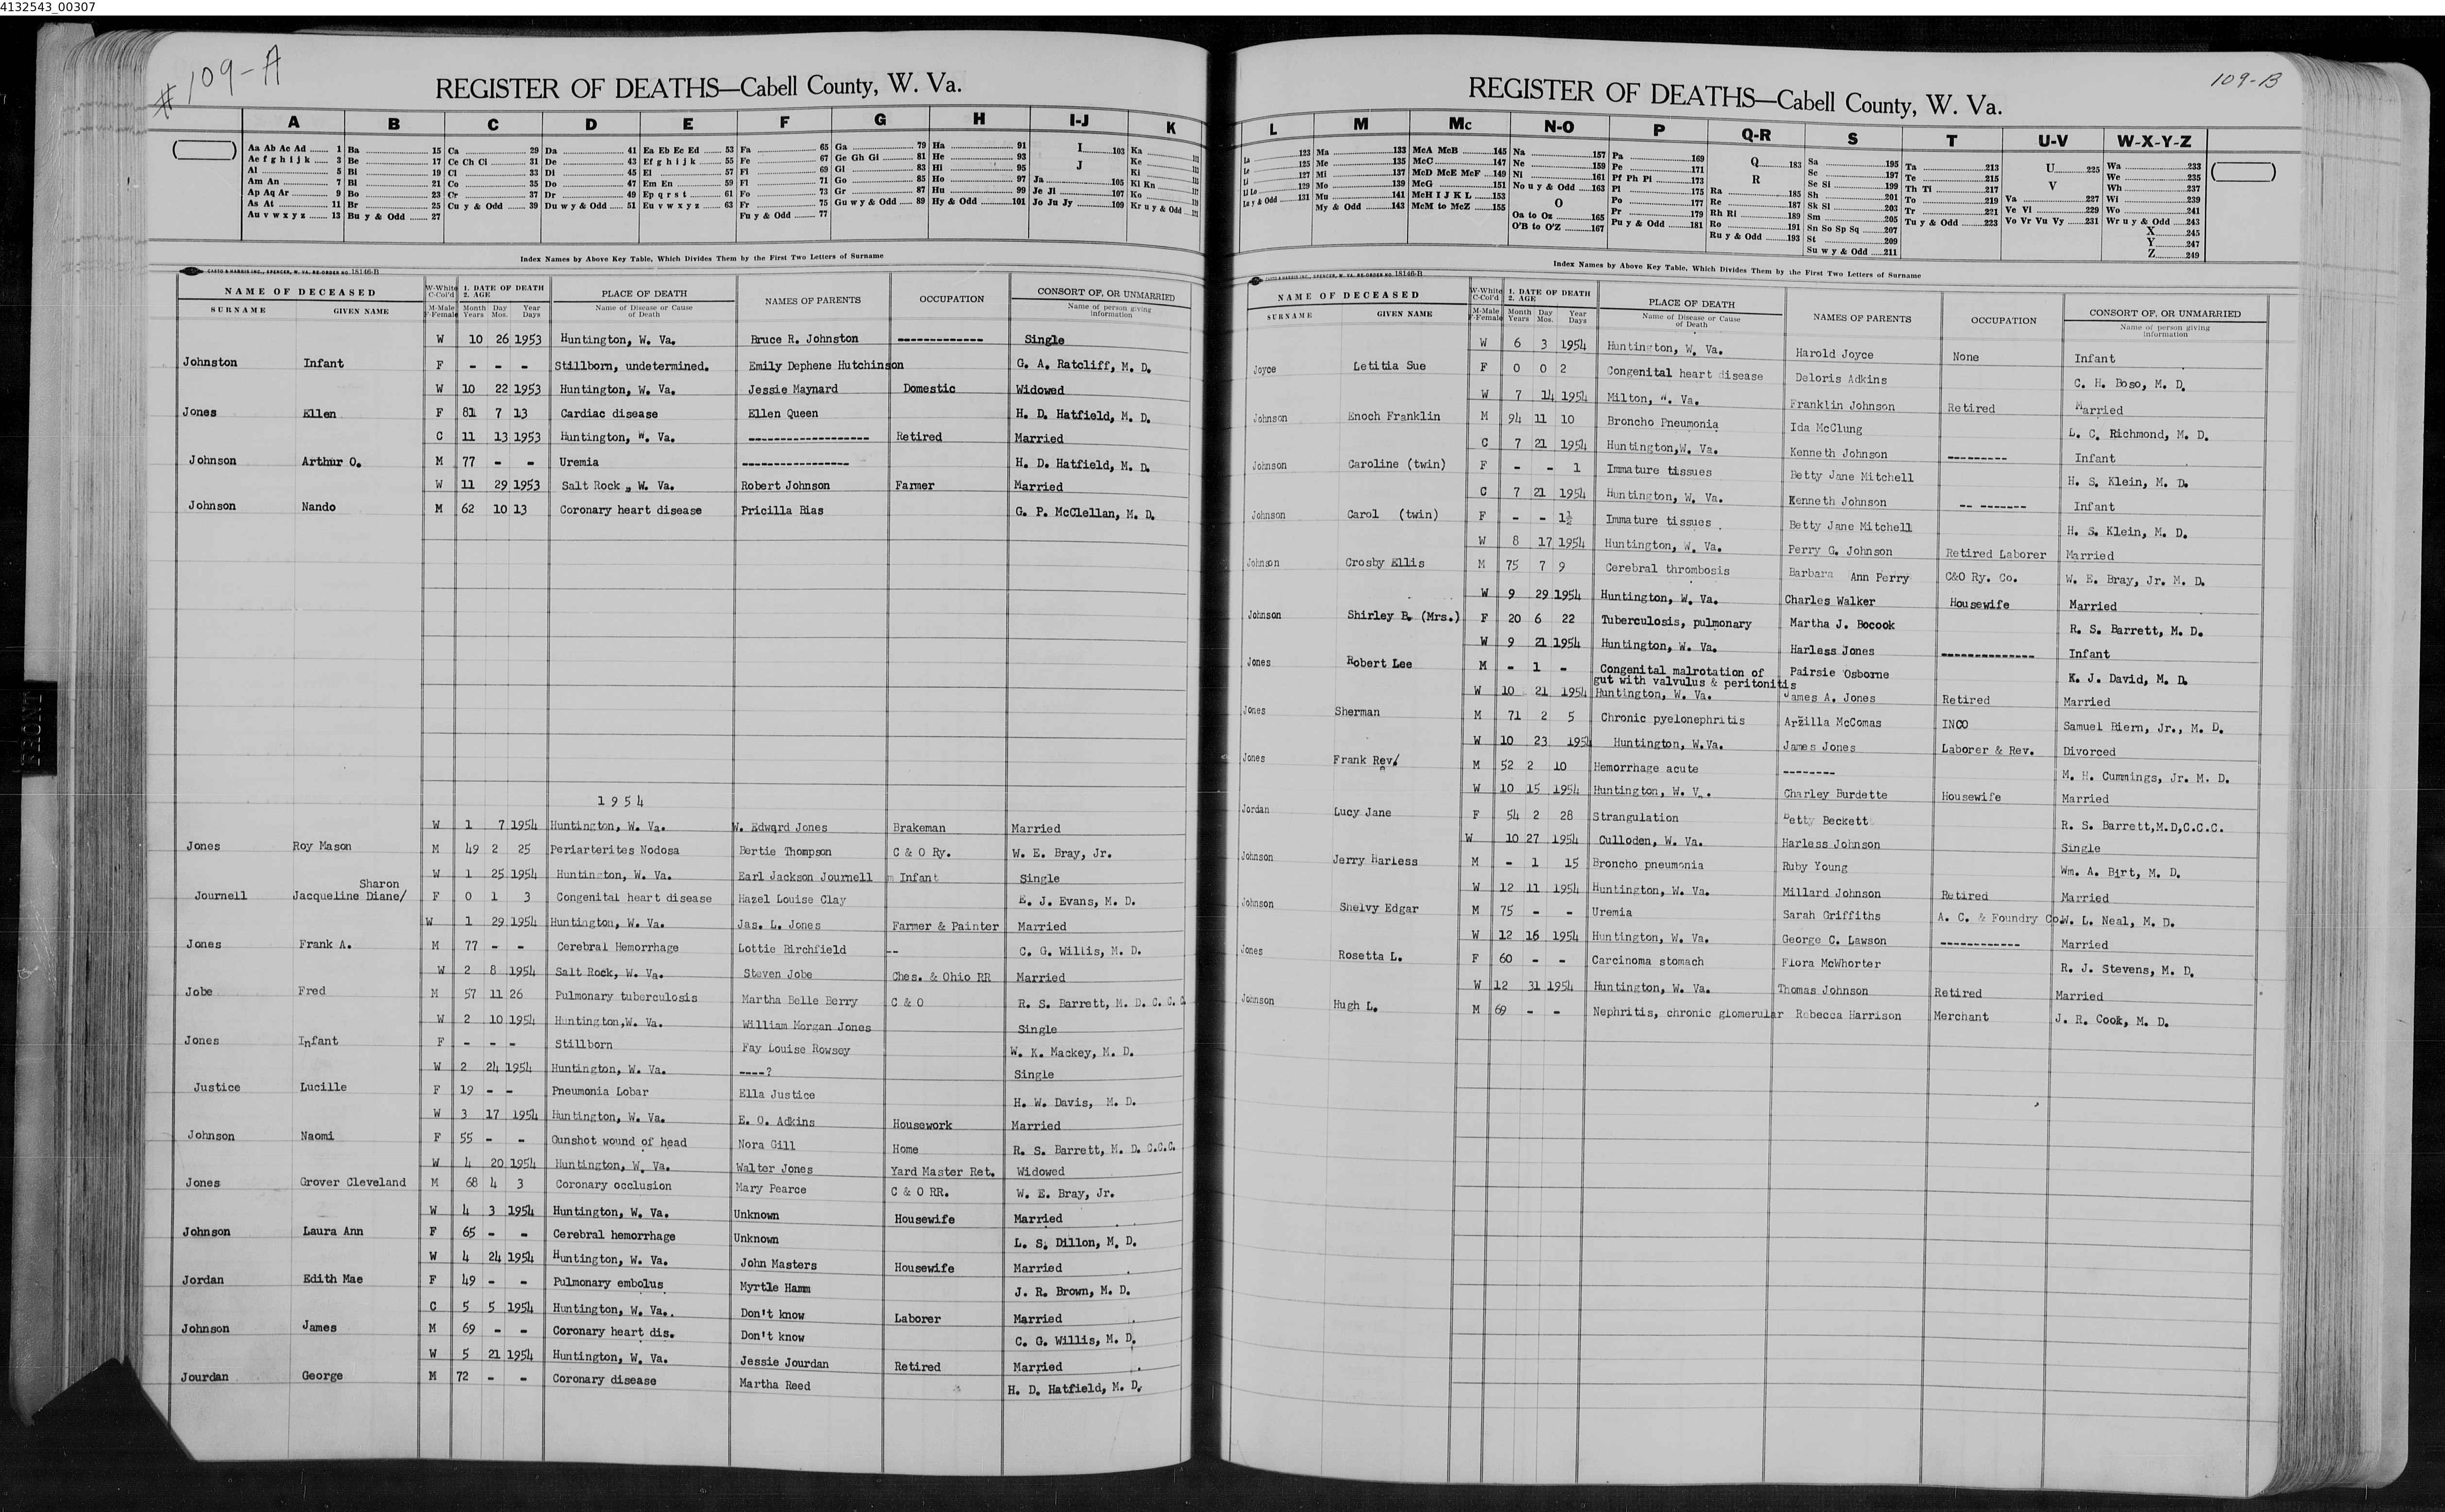 4132543_00307
# 109-A
REGISTER OF DEATHS—Cabell County, W. Va.
A B C D E F G H I-J K
Aa Ab Ac Ad 1 Ba 15 Ca 29 Da 41 Ea Eb Ec Ed 53 Fa 65 Ga 79 Ha 91 I 103 Ka
Ae f g h i j k 3 Be 17 Ce Ch Ci 31 De 43 Ef g h i j k 55 Fe 67 Ge Gh Gi 81 He 93 J Ke
Al 5 Bi 19 Cl 33 Di 45 El 57 Fi 69 Gl 83 Hi 95 Ki
Am An 7 Bl 21 Co 35 Do 47 Em En 59 Fl 71 Go 85 Ho 97 Ja 105 Kl Kn
Ap Aq Ar 9 Bo 23 Cr 37 Dr 49 Ep q r s t 61 Fo 73 Gr 87 Hu 99 Je Ji 107 Ko
As At 11 Br 25 Cu y & Odd 39 Du w y & Odd 51 Eu v w x y z 63 Fr 75 Gu w y & Odd 89 Hy & Odd 101 Jo Ju Jy 109 Kr u y & Odd
Au v w x y z 13 Bu y & Odd 27 Fu y & Odd 77
Index Names by Above Key Table, Which Divides Them by the First Two Letters of Surname
CASTO & HARRIS INC., SPENCER, W. VA. RE-ORDER NO. 18146-B
NAME OF DECEASED W-White C-Col'd 1. DATE OF DEATH 2. AGE PLACE OF DEATH NAMES OF PARENTS OCCUPATION CONSORT OF, OR UNMARRIED
SURNAME GIVEN NAME M-Male F-Female Month Years Day Mos. Year Days Name of Disease or Cause of Death Name of person giving information
W 10 26 1953 Huntington, W. Va. Bruce R. Johnston ------------- Single
Johnston Infant F - - - Stillborn, undetermined. Emily Dephene Hutchinson G. A. Ratcliff, M. D.
W 10 22 1953 Huntington, W. Va. Jessie Maynard Domestic Widowed
Jones Ellen F 81 7 13 Cardiac disease Ellen Queen H. D. Hatfield, M. D.
C 11 13 1953 Huntington, W. Va. ------------------- Retired Married
Johnson Arthur O. M 77 - - Uremia ----------------- H. D. Hatfield, M. D.
W 11 29 1953 Salt Rock , W. Va. Robert Johnson Farmer Married
Johnson Nando M 62 10 13 Coronary heart disease Pricilla Bias G. P. McClellan, M. D.
1 9 5 4
W 1 7 1954 Huntington, W. Va. W. Edward Jones Brakeman Married
Jones Roy Mason M 49 2 25 Periarterites Nodosa Bertie Thompson C & O Ry. W. E. Bray, Jr.
W 1 25 1954 Huntington, W. Va. Earl Jackson Journell Infant Single
Sharon
Journell Jacqueline Diane/ F 0 1 3 Congenital heart disease Hazel Louise Clay E. J. Evans, M. D.
W 1 29 1954 Huntington, W. Va. Jas. L. Jones Farmer & Painter Married
Jones Frank A. M 77 - - Cerebral Hemorrhage Lottie Birchfield -- C. G. Willis, M. D.
W 2 8 1954 Salt Rock, W. Va. Steven Jobe Ches. & Ohio RR Married
Jobe Fred M 57 11 26 Pulmonary tuberculosis Martha Belle Berry C & O R. S. Barrett, M. D. C. C. C.
W 2 10 1954 Huntington,W. Va. William Morgan Jones Single
Jones Infant F - - - Stillborn Fay Louise Rowsey W. K. Mackey, M. D.
W 2 24 1954 Huntington, W. Va. ----? Single
Justice Lucille F 19 - - Pneumonia Lobar Ella Justice H. W. Davis, M. D.
W 3 17 1954 Huntington, W. Va. E. O. Adkins Housework Married
Johnson Naomi F 55 - - Gunshot wound of head Nora Gill Home R. S. Barrett, M. D. C.C.C.
W 4 20 1954 Huntington, W. Va. Walter Jones Yard Master Ret. Widowed
Jones Grover Cleveland M 68 4 3 Coronary occlusion Mary Pearce C & O RR. W. E. Bray, Jr.
W 4 3 1954 Huntington, W. Va. Unknown Housewife Married
Johnson Laura Ann F 65 - - Cerebral hemorrhage Unknown L. S. Dillon, M. D.
W 4 24 1954 Huntington, W. Va. John Masters Housewife Married
Jordan Edith Mae F 49 - - Pulmonary embolus Myrtle Hamm J. R. Brown, M. D.
C 5 5 1954 Huntington, W. Va. Don't know Laborer Married
Johnson James M 69 - - Coronary heart dis. Don't know C. G. Willis, M. D.
W 5 21 1954 Huntington, W. Va. Jessie Jourdan Retired Married
Jourdan George M 72 - - Coronary disease Martha Reed H. D. Hatfield, M. D.
109-B
REGISTER OF DEATHS—Cabell County, W. Va.
L M Mc N-O P Q-R S T U-V W-X-Y-Z
La 123 Ma 133 McA McB 145 Na 157 Pa 169 Q 183 Sa 195 Ta 213 U 225 Wa 233
Le 125 Me 135 McC 147 Ne 159 Pe 171 R Sc 197 Te 215 V We 235
Li 127 Mi 137 McD McE McF 149 Ni 161 Pf Ph Pi 173 Ra 185 Se Si 199 Th Ti 217 Va 227 Wh 237
Ll Lo 129 Mo 139 McG 151 No u y & Odd 163 Pl 175 Re 187 Sh 201 To 219 Ve Vi 229 Wi 239
Lu y & Odd 131 Mu 141 McH I J K L 153 O Po 177 Rh Ri 189 Sk Sl 203 Tr 221 Vo Vr Vu Vy 231 Wo 241
My & Odd 143 McM to McZ 155 Oa to Oz 165 Pr 179 Ro 191 Sm 205 Tu y & Odd 223 Wr u y & Odd 243
O'B to O'Z 167 Pu y & Odd 181 Ru y & Odd 193 Sn So Sp Sq 207 X 245
St 209 Y 247
Su w y & Odd 211 Z 249
Index Names by Above Key Table, Which Divides Them by the First Two Letters of Surname
CASTO & HARRIS INC., SPENCER, W. VA. RE-ORDER NO. 18146-B
NAME OF DECEASED W-White C-Col'd 1. DATE OF DEATH 2. AGE PLACE OF DEATH NAMES OF PARENTS OCCUPATION CONSORT OF, OR UNMARRIED
SURNAME GIVEN NAME M-Male F-Female Month Years Day Mos. Year Days Name of Disease or Cause of Death Name of person giving information
W 6 3 1954 Huntington, W. Va. Harold Joyce None Infant
Joyce Letitia Sue F 0 0 2 Congenital heart disease Deloris Adkins C. H. Boso, M. D.
W 7 14 1954 Milton, W. Va. Franklin Johnson Retired Married
Johnson Enoch Franklin M 94 11 10 Broncho Pneumonia Ida McClung L. C. Richmond, M. D.
C 7 21 1954 Huntington,W. Va. Kenneth Johnson --------- Infant
Johnson Caroline (twin) F - - 1 Immature tissues Betty Jane Mitchell H. S. Klein, M. D.
C 7 21 1954 Huntington, W. Va. Kenneth Johnson -- ------- Infant
Johnson Carol (twin) F - - 1½ Immature tissues Betty Jane Mitchell H. S. Klein, M. D.
W 8 17 1954 Huntington, W. Va. Perry G. Johnson Retired Laborer Married
Johnson Crosby Ellis M 75 7 9 Cerebral thrombosis Barbara Ann Perry C&O Ry. Co. W. E. Bray, Jr. M. D.
W 9 29 1954 Huntington, W. Va. Charles Walker Housewife Married
Johnson Shirley B. (Mrs.) F 20 6 22 Tuberculosis, pulmonary Martha J. Bocook R. S. Barrett, M. D.
W 9 21 1954 Huntington, W. Va. Harless Jones -------------- Infant
Jones Robert Lee M - 1 - Congenital malrotation of Pairsie Osborne K. J. David, M. D.
gut with valvulus & peritonitis
W 10 21 1954 Huntington, W. Va. James A. Jones Retired Married
Jones Sherman M 71 2 5 Chronic pyelonephritis Arzilla McComas INCO Samuel Biern, Jr., M. D.
W 10 23 1954 Huntington, W.Va. James Jones Laborer & Rev. Divorced
Jones Frank Rev/ M 52 2 10 Hemorrhage acute -------- M. H. Cummings, Jr. M. D.
W 10 15 1954 Huntington, W. V . Charley Burdette Housewife Married
Jordan Lucy Jane F 54 2 28 Strangulation Betty Beckett R. S. Barrett,M.D,C.C.C.
W 10 27 1954 Culloden, W. Va. Harless Johnson Single
Johnson Jerry Harless M - 1 15 Broncho pneumonia Ruby Young Wm. A. Birt, M. D.
W 12 11 1954 Huntington, W. Va. Millard Johnson Retired Married
Johnson Shelvy Edgar M 75 - - Uremia Sarah Griffiths A. C. & Foundry Co. W. L. Neal, M. D.
W 12 16 1954 Huntington, W. Va. George C. Lawson ------------ Married
Jones Rosetta L. F 60 - - Carcinoma stomach Flora McWhorter R. J. Stevens, M. D.
W 12 31 1954 Huntington, W. Va. Thomas Johnson Retired Married
Johnson Hugh L. M 69 - - Nephritis, chronic glomerular Rebecca Harrison Merchant J. R. Cook, M. D.
FRONT